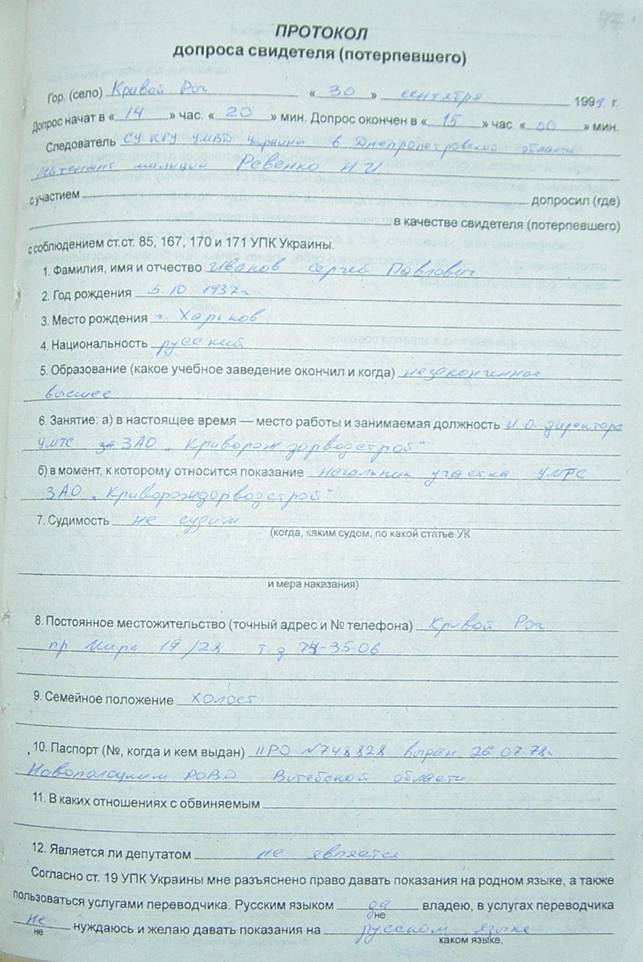 ПРОТОКОЛ
допроса свидетеля (потерпевшего)
Гор. (село) Кривой Рог « 30 » сентября 1999 г.
Допрос начат в « 14 » час. « 20 » мин. Допрос окончен в « 15 » час. « 00 » мин.
Следователь СУ КГУ УМВД Украины в Днепропетровской области
лейтенант милиции Ревенко Н И
с участием допросил (где)
в качестве свидетеля (потерпевшего)
с соблюдением ст.ст. 85, 167, 170 и 171 УПК Украины.
1. Фамилия, имя и отчество Иванов Сергей Павлович
2. Год рождения 5.10 1937г
3. Место рождения г. Харьков
4. Национальность русский
5. Образование (какое учебное заведение окончил и когда) незаконченное
высшее
6. Занятие: а) в настоящее время — место работы и занимаемая должность И О директора
УМТС ЗАО „Криворождорводстрой"
б) в момент, к которому относится показание начальник участка УМТС
ЗАО „Криворождорводстрой"
7. Судимость не судим
(когда, каким судом, по какой статье УК
и мера наказания)
8. Постоянное местожительство (точный адрес и № телефона) Кривой Рог
пр Мира 19/28 т.д 74-35-06
9. Семейное положение холост
10. Паспорт (№, когда и кем выдан) II РО №748828 выдан 26.07.78г
Новополоцким РОВД Витебской области
11. В каких отношениях с обвиняемым
12. Является ли депутатом не является
Согласно ст. 19 УПК Украины мне разъяснено право давать показания на родном языке, а также
пользоваться услугами переводчика. Русским языком да владею, в услугах переводчика
не
не нуждаюсь и желаю давать показания на русском языке
не каком языке.